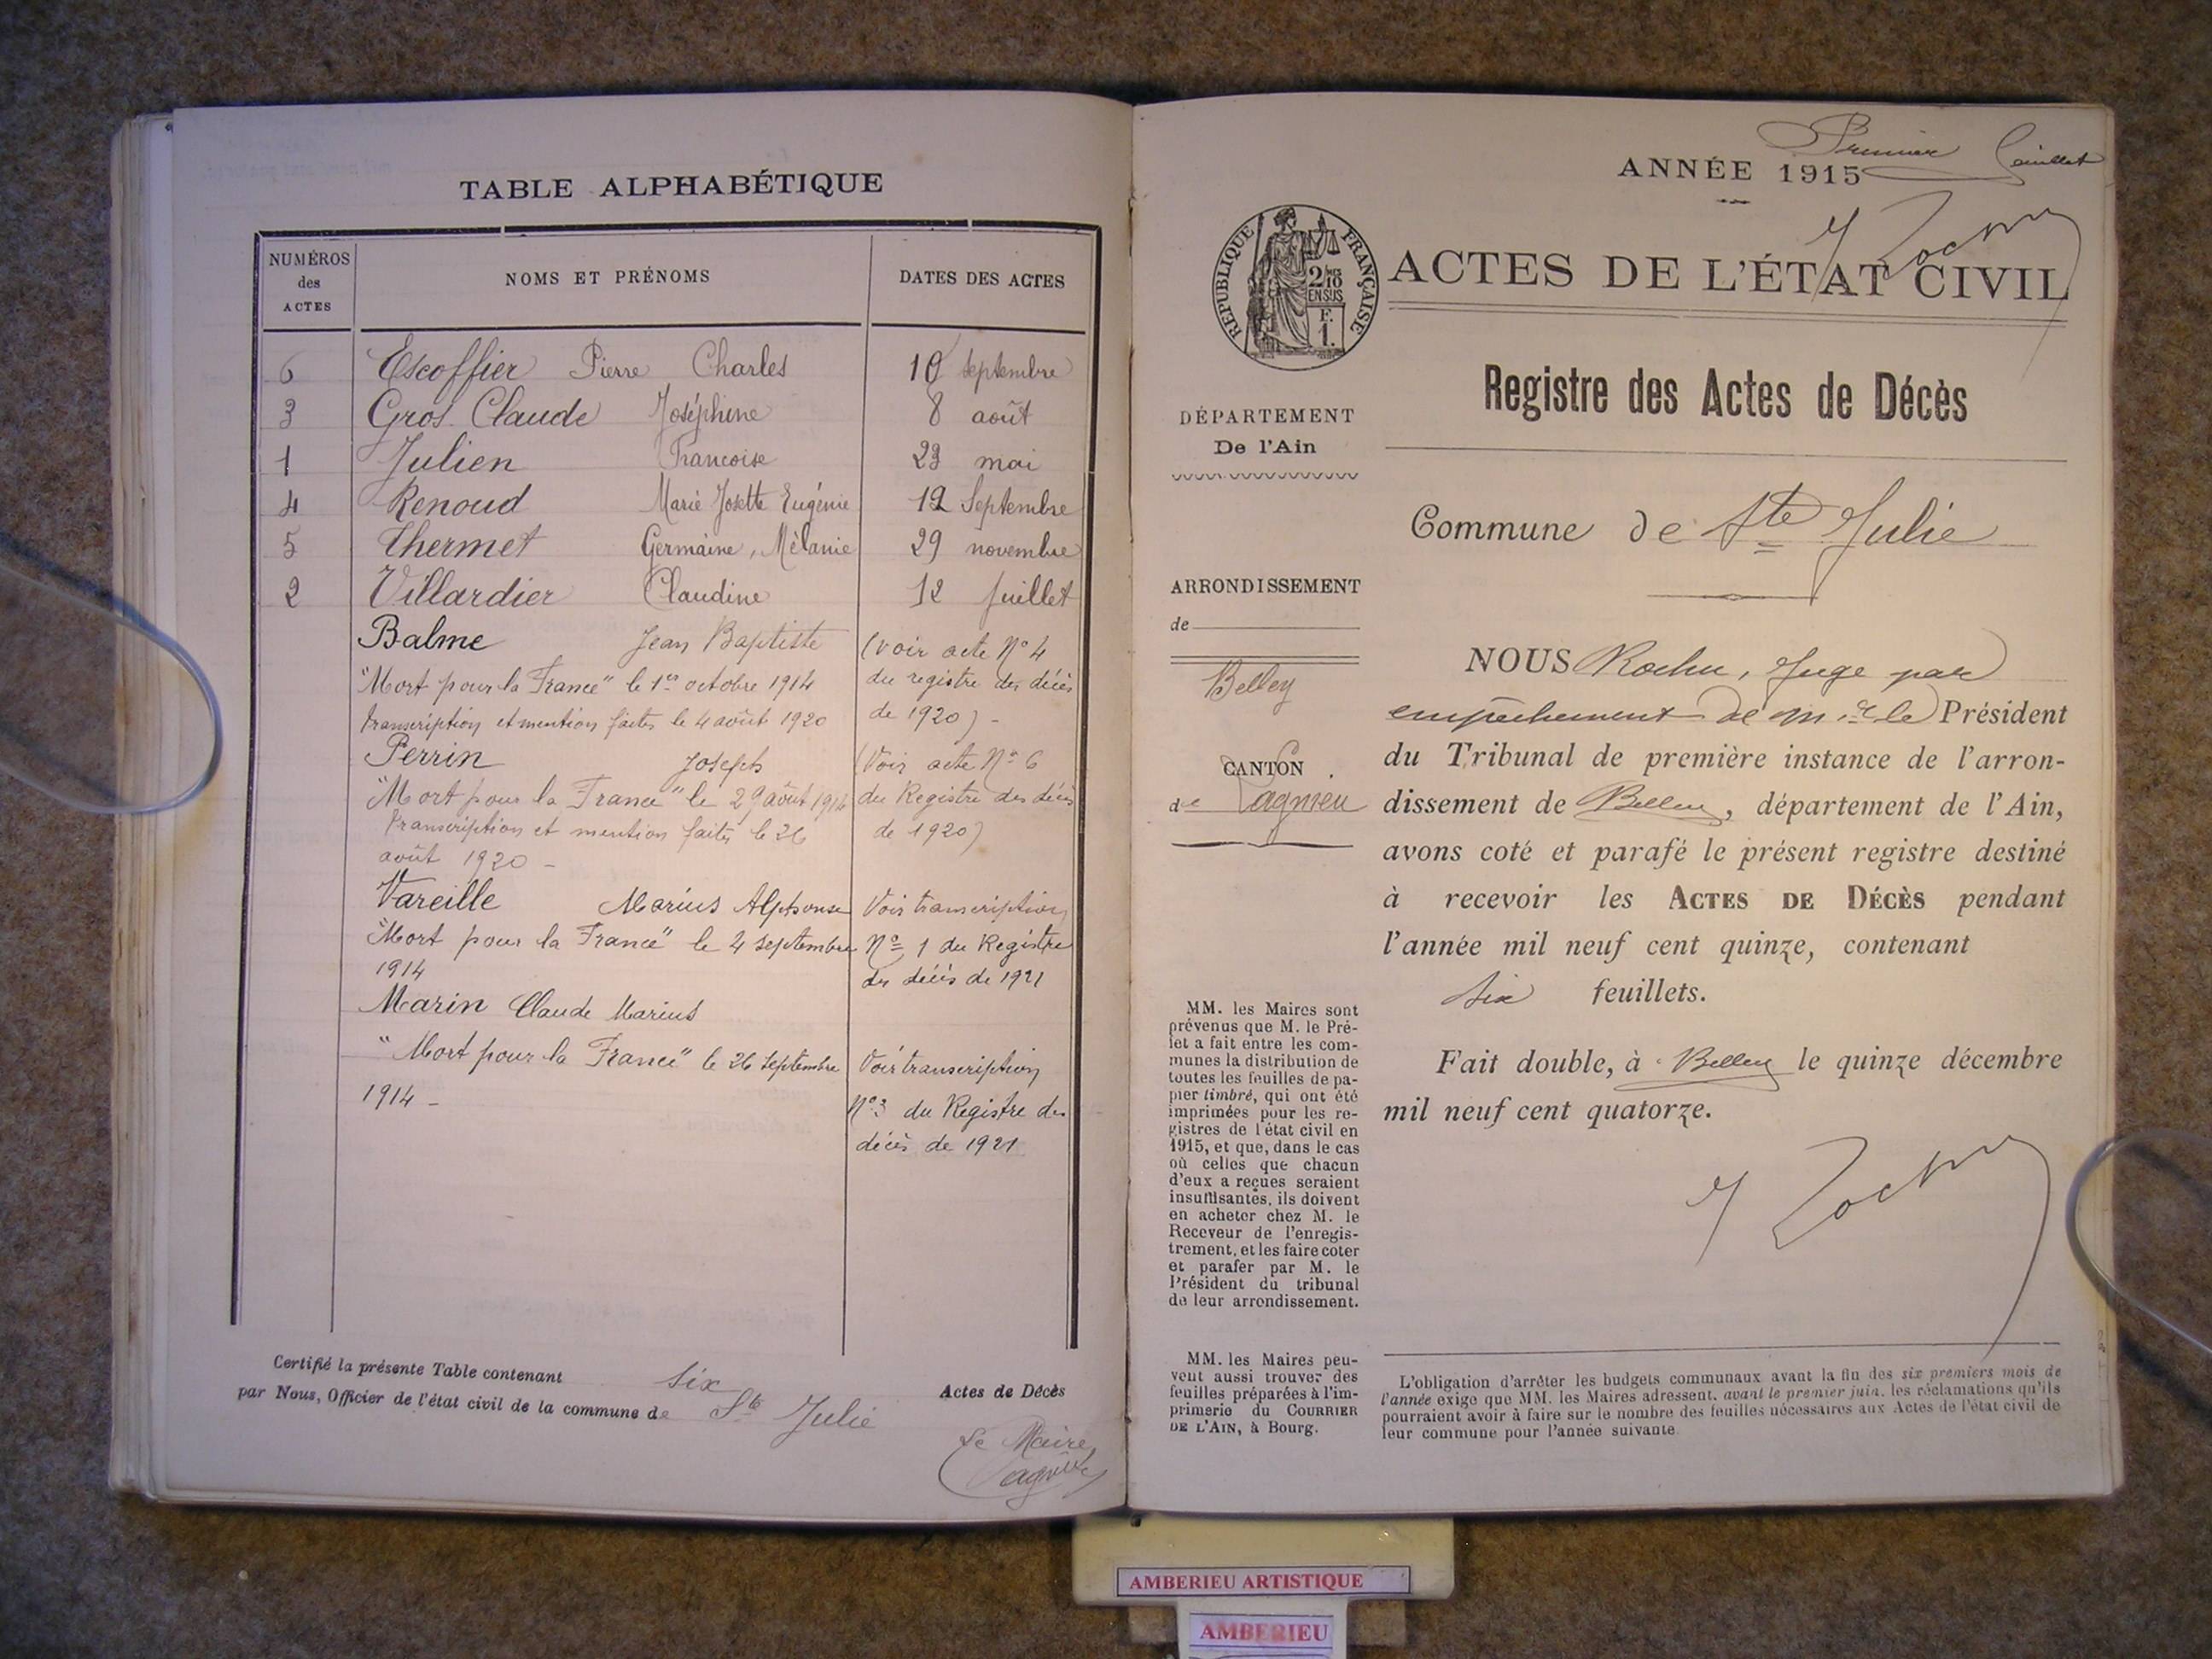 TABLE ALPHABÉTIQUE
NUMÉROS
des
ACTES
NOMS ET PRÉNOMS
DATES DES ACTES
6 Escoffier Pierre Charles 10 septembre
3 Gros Claude Joséphine 8 août
1 Julien Francoise 23 mai
4 Renoud Marie Josette Eugénie 12 Septembre
5 Thermet Germaine, Mélanie 29 novembre
2 Villardier Claudine 12 Juillet
Balme Jean Baptiste (voir acte N° 4
"Mort pour la France" le 1er octobre 1914 du registre des décès
transcription et mention faites le 4 août 1920 de 1920) -
Perrin Joseph (Voir acte N° 6
"Mort pour la France" le 29 août 1914 du Registre des décès
transcription et mention faites le 26 de 1920)
août 1920 -
Vareille Marius Alphonse Voir transcription
"Mort pour la France" le 4 septembre N° 1 du Registre
1914 des décès de 1921
Marin Claude Marius
"Mort pour la France" le 26 septembre Voir transcription
1914 - N° 3 du Registre des
décès de 1921
Certifié la présente Table contenant six Actes de Décès
par Nous, Officier de l'état civil de la commune de Ste Julie
Le Maire
Premier feuillet
ANNÉE 1915
RÉPUBLIQUE FRANÇAISE
2/10
EN SUS
F.
1.
ACTES DE L'ÉTAT CIVIL
Registre des Actes de Décès
DÉPARTEMENT
De l'Ain
Commune de Ste Julie
ARRONDISSEMENT
de
Belley
CANTON
de Lagnieu
NOUS Rochu, Juge par
empêchement de Mr le Président
du Tribunal de première instance de l'arron-
dissement de Belley, département de l'Ain,
avons coté et parafé le présent registre destiné
à recevoir les ACTES DE DÉCÈS pendant
l'année mil neuf cent quinze, contenant
six feuillets.
Fait double, à Belley le quinze décembre
mil neuf cent quatorze.
MM. les Maires sont
prévenus que M. le Pré-
fet a fait entre les com-
munes la distribution de
toutes les feuilles de pa-
pier timbré, qui ont été
imprimées pour les re-
gistres de l'état civil en
1915, et que, dans le cas
où celles que chacun
d'eux a reçues seraient
insuffisantes, ils doivent
en acheter chez M. le
Receveur de l'enregis-
trement, et les faire coter
et parafer par M. le
Président du tribunal
de leur arrondissement.
MM. les Maires peu-
vent aussi trouver des
feuilles préparées à l'im-
primerie du COURRIER
DE L'AIN, à Bourg.
L'obligation d'arrêter les budgets communaux avant la fin des six premiers mois de
l'année exige que MM. les Maires adressent, avant le premier juin, les réclamations qu'ils
pourraient avoir à faire sur le nombre des feuilles nécessaires aux Actes de l'état civil de
leur commune pour l'année suivante.
AMBERIEU ARTISTIQUE
AMBERIEU